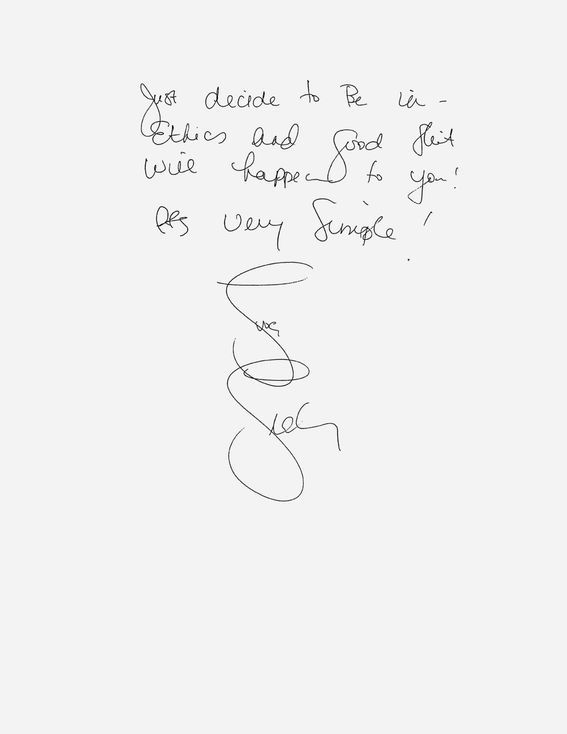 Just decide to Be in-
Ethics and good shit
will happen to you!
very Simple!